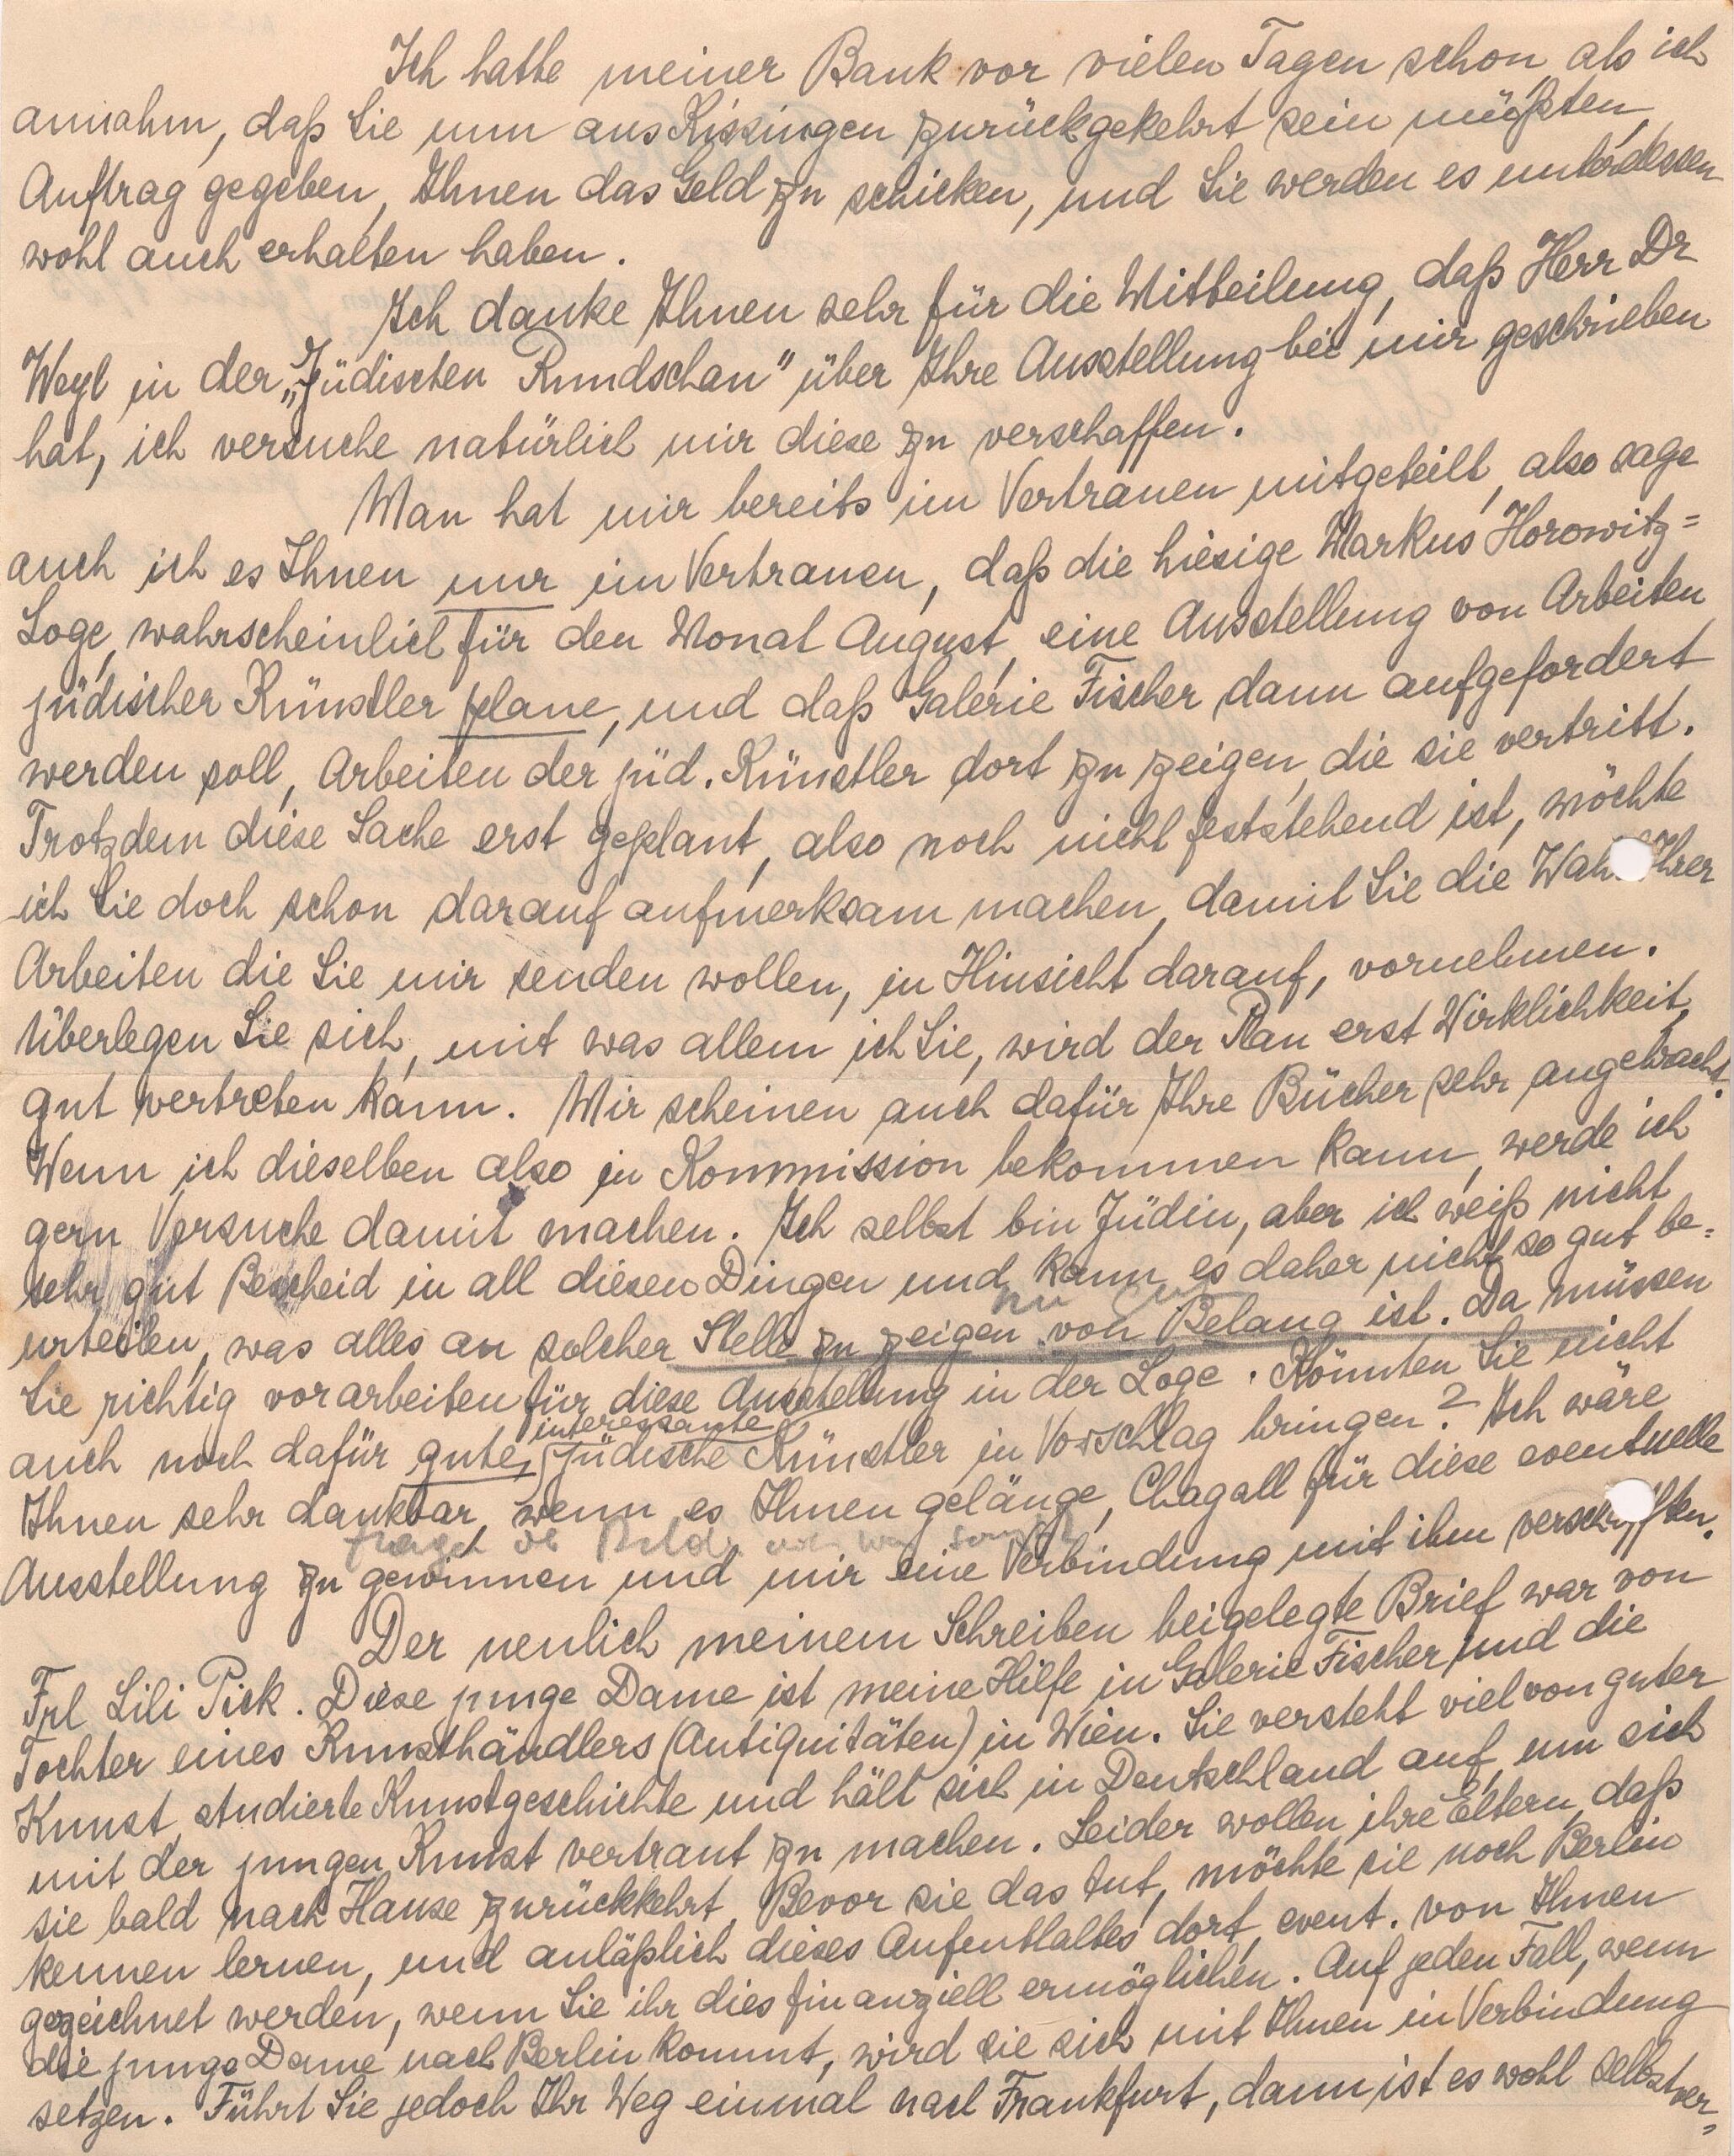 Ich hatte meiner Bank vor vielen Tagen schon, als ich
annahm, daß Sie nun aus Kissingen zurückgekehrt sein müßten,
Auftrag gegeben, Ihnen das Geld zu schicken, und Sie werden es unterdessen
wohl auch erhalten haben.
Ich danke Ihnen sehr für die Mitteilung, daß Herr Dr
Weyl in der „Jüdischen Rundschau" über Ihre Ausstellung bei mir geschrieben
hat, ich versuche natürlich mir diese zu verschaffen.
Man hat mir bereits im Vertrauen mitgeteilt, also sage
auch ich es Ihnen nur im Vertrauen, daß die hiesige Markus Horowitz=
Loge, wahrscheinlich für den Monat August, eine Ausstellung von Arbeiten
jüdischer Künstler plane, und daß Galerie Fischer dann aufgefordert
werden soll, Arbeiten der jüd. Künstler dort zu zeigen, die sie vertritt.
Trotzdem diese Sache erst geplant, also noch nicht feststehend ist, möchte
ich Sie doch schon darauf aufmerksam machen, damit Sie die Wahl Ihrer
Arbeiten die Sie mir senden wollen, in Hinsicht darauf, vornehmen.
Überlegen Sie sich, mit was allem ich Sie, wird der Plan erst Wirklichkeit,
gut vertreten kann. Mir scheinen auch dafür Ihre Bücher sehr angebracht.
Wenn ich dieselben also in Kommission bekommen kann, werde ich
gern Versuche damit machen. Ich selbst bin Jüdin, aber ich weiß nicht
sehr gut Bescheid in all diesen Dingen und kann es daher nicht so gut be=
urteilen, was alles an solcher Stelle zu zeigen von Belang ist. Da müssen
Sie richtig vorarbeiten für diese Ausstellung in der Loge. Könnten Sie nicht
auch noch dafür gute, interessante jüdische Künstler in Vorschlag bringen? Ich wäre
Ihnen sehr dankbar, wenn es Ihnen gelänge, Chagall für diese eventuelle
Ausstellung zu gewinnen und mir eine Verbindung mit ihm verschafften.
Der neulich meinem Schreiben beigelegte Brief war von
Frl Lili Pick. Diese junge Dame ist meine Hilfe in Galerie Fischer und die
Tochter eines Kunsthändlers (Antiquitäten) in Wien. Sie versteht viel von guter
Kunst, studierte Kunstgeschichte und hält sich in Deutschland auf, um sich
mit der jungen Kunst vertraut zu machen. Leider wollen ihre Eltern, daß
sie bald nach Hause zurückkehrt. Bevor sie das tut, möchte sie noch Berlin
kennen lernen, und anläßlich dieses Aufenthaltes dort, event. von Ihnen
gezeichnet werden, wenn Sie ihr dies finanziell ermöglichen. Auf jeden Fall, wenn
die junge Dame nach Berlin kommt, wird sie sich mit Ihnen in Verbindung
setzen. Führt Sie jedoch Ihr Weg einmal nach Frankfurt, dann ist es wohl selbstver=